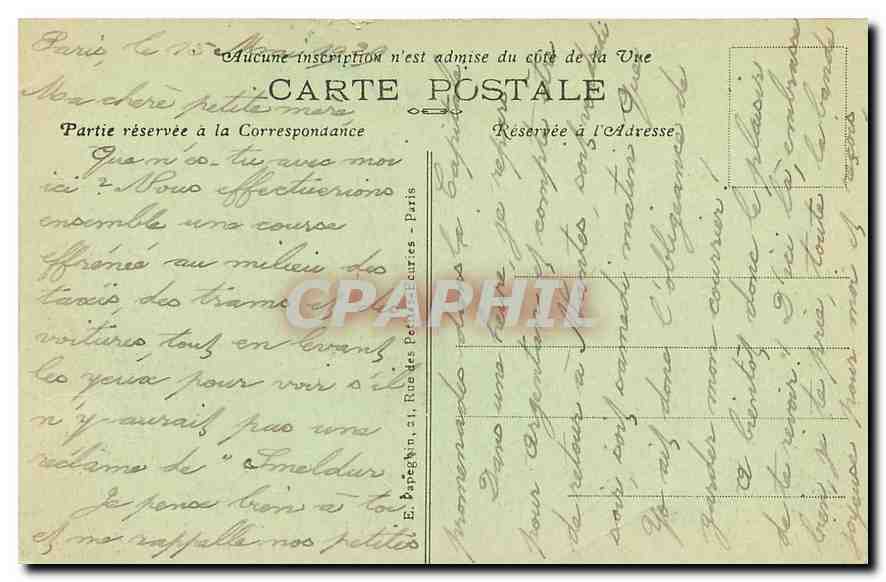 Paris, le 15 Mai 1929
Aucune inscription n'est admise du côté de la Vue
CARTE POSTALE
Ma chère petite mère
Partie réservée à la Correspondance
Réservée à l'Adresse
Que n'es-tu avec moi
ici? Nous effectuerions
ensemble une course
effrénée au milieu des
taxis, des trams et des
voitures, tout en levant
les yeux pour voir s'il
n'y aurait pas une
réclame de "Smeldur
Je pense bien à toi
et me rappelle nos petites
E. Papeghin, 21, Rue des Petites-Écuries - Paris
CPAPHIL
promenades dans la Capitale
Dans une heure, je repars
pour Argentan et compte être
de retour à Nantes, soit vendredi
soir, soit samedi matin. Que
Yo ait donc l'obligeance de
garder mon courrier!
A bientôt donc le plaisir
de te revoir. D'ici là, embrasse
bien, je te prie, toute la bande
joyeuse pour moi et